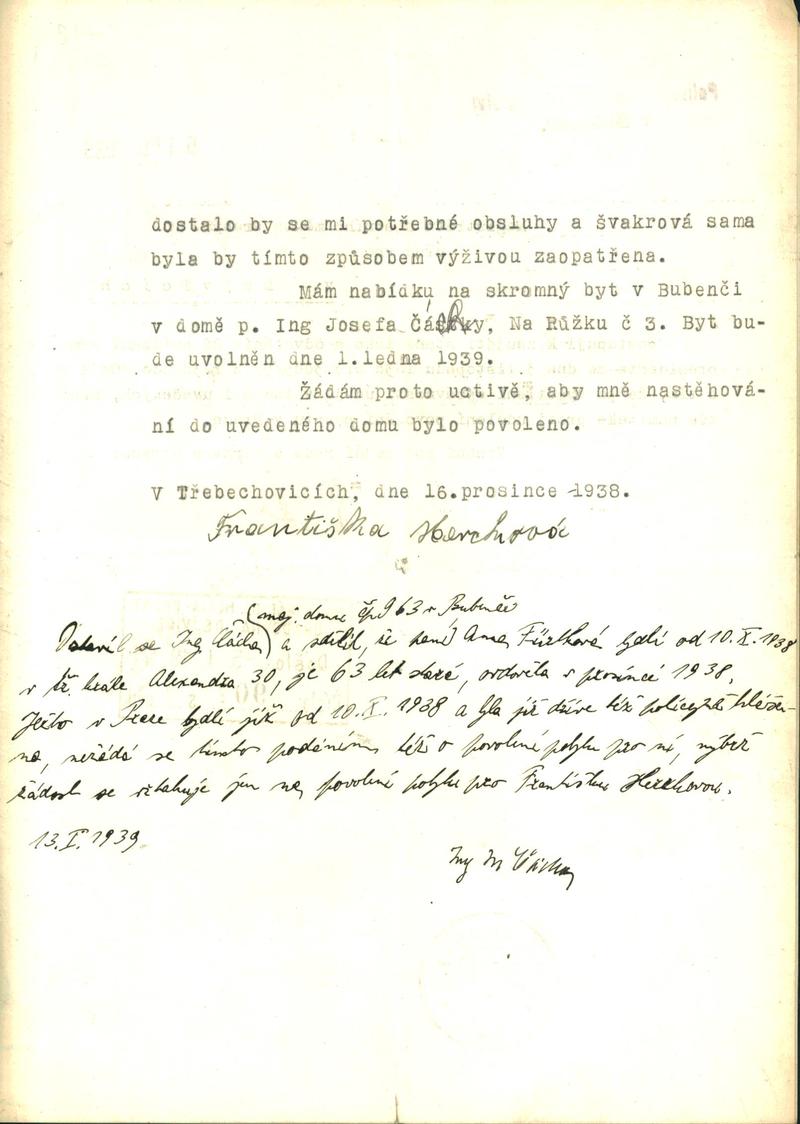 dostalo by se mi potřebné obsluhy a švakrová sama
byla by tímto způsobem výživou zaopatřena.
Mám nabídku na skromný byt v Bubenči
v domě p. Ing Josefa Čá ky, Na Růžku č 3. Byt bu-
de uvolněn dne 1.ledna 1939.
Žádám proto uctivě, aby mně nastěhová-
ní do uvedeného domu bylo povoleno.
V Třebechovicích, dne 16.prosince 1938.
Františka Herchová
(maj. domu čp 963 v Bubenči
Dostavil se Ing ) a sdělil, že paní Anna bydlí od 10.X.1938
v tř. krále Alexandra 30, je 63 let stará, ovdověla v prosinci 1938.
Ježto v Praze bydlí již od 10.X.1938 a byla již dříve též policejně hláše-
na, nežádá se tímto podáním též o povolení pobytu pro ni, nýbrž
žádost se vztahuje jen na povolení pobytu pro Františku Herchovou.
13.I.1939
Ing